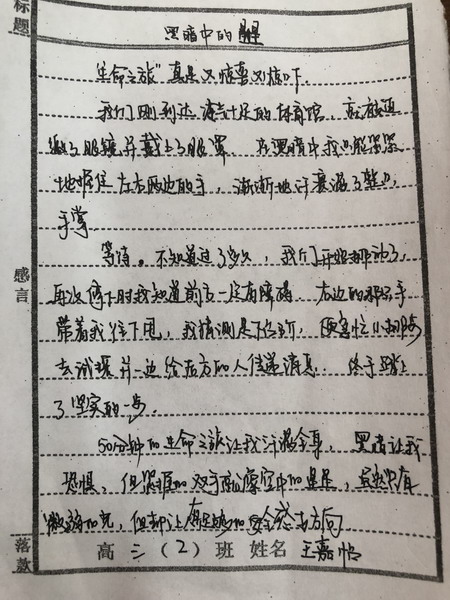 标题
黑暗中的
生命之旅"真是又惊喜又惊吓.
我们刚到达冷气十足的体育馆，就被迫
了眼镜并戴上了眼罩 在黑暗中我
地握住左右两边的手，渐渐地汗
手掌
等待。不知道过了多久，我们开始挪动了
再次停下时我知道前方一定有障碍.右边的那只手
带着我往下甩，我猜测是下台阶，
去试探并一边给左方的人传递消息. 终于踏上
了坚实的一步.
50分钟的生命之旅让我汗湿全身，黑暗让我
恐惧，但紧握的双手空中的星星，虽然只有
微弱的光，但却让有足够的安全感与方向
感言
落款
高三（2）班 姓名 王嘉怡